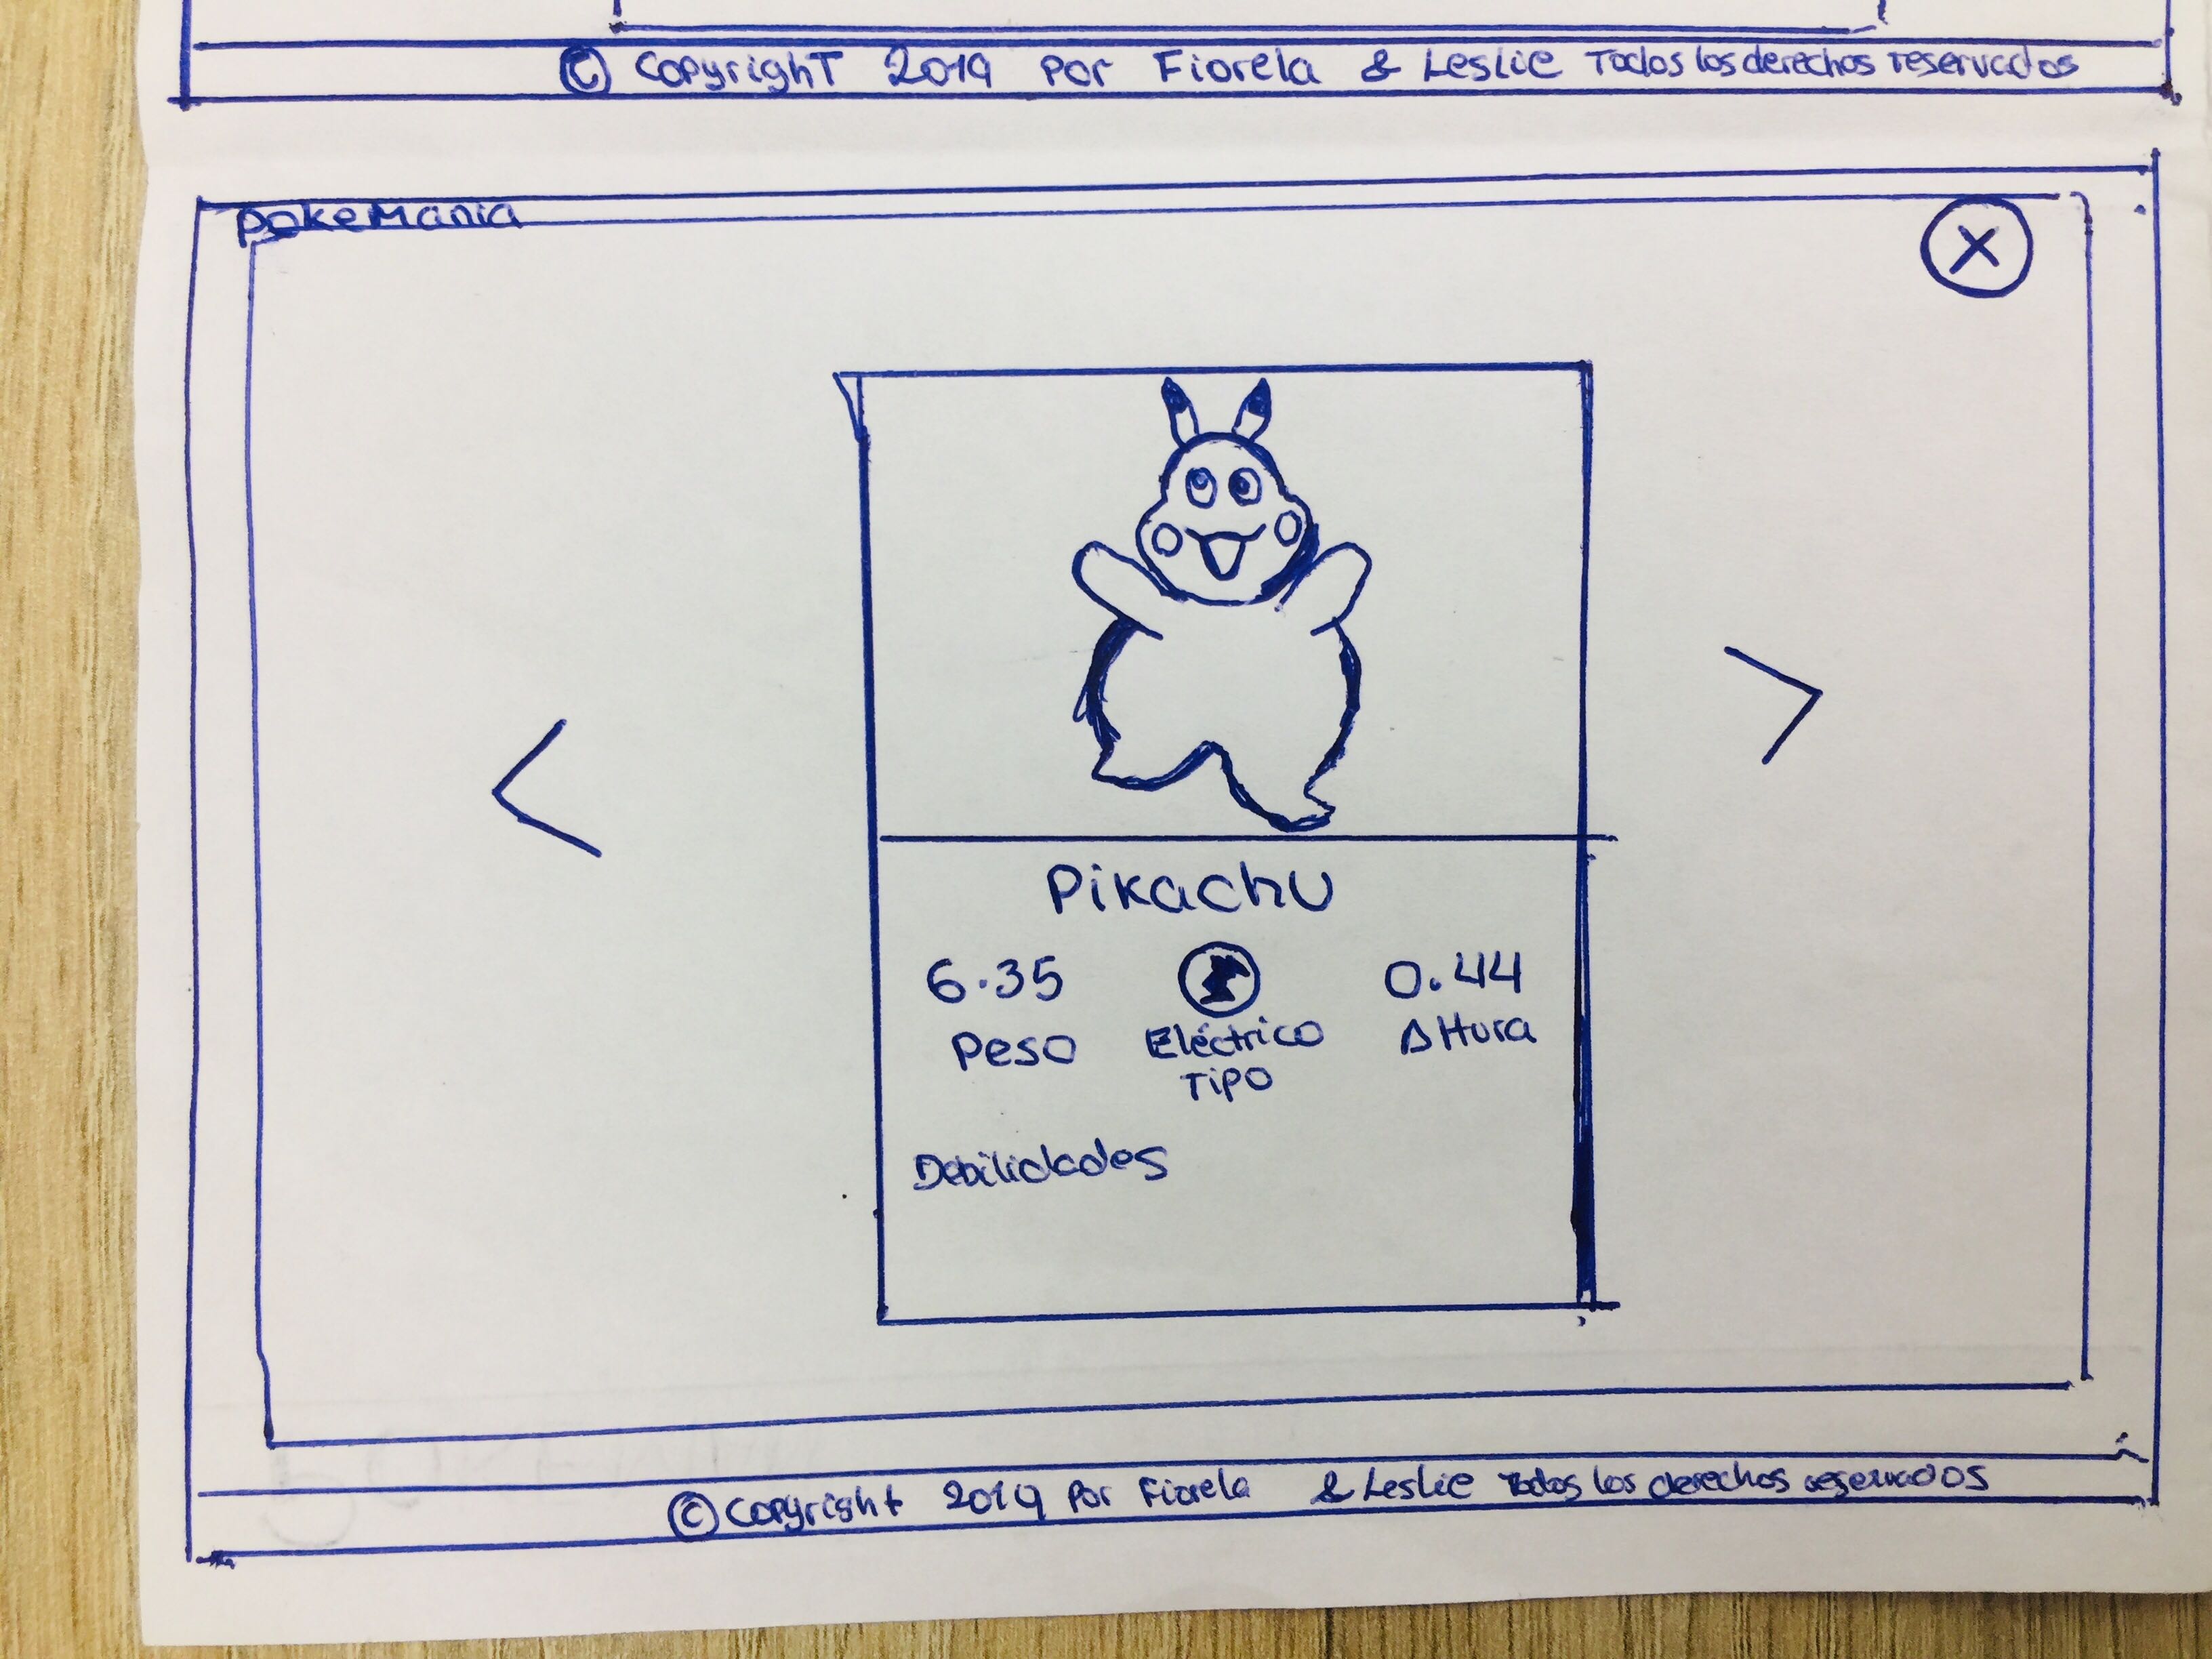 © CopyrighT 2019 por Fiorela & Leslie Todos los derechos reservados
pokeMania
X
< >
Pikachu
6.35 0.44
Peso Eléctrico Altura
Tipo
Debilidades
© Copyright 2019 por Fiorela & Leslie Todos los derechos reservados